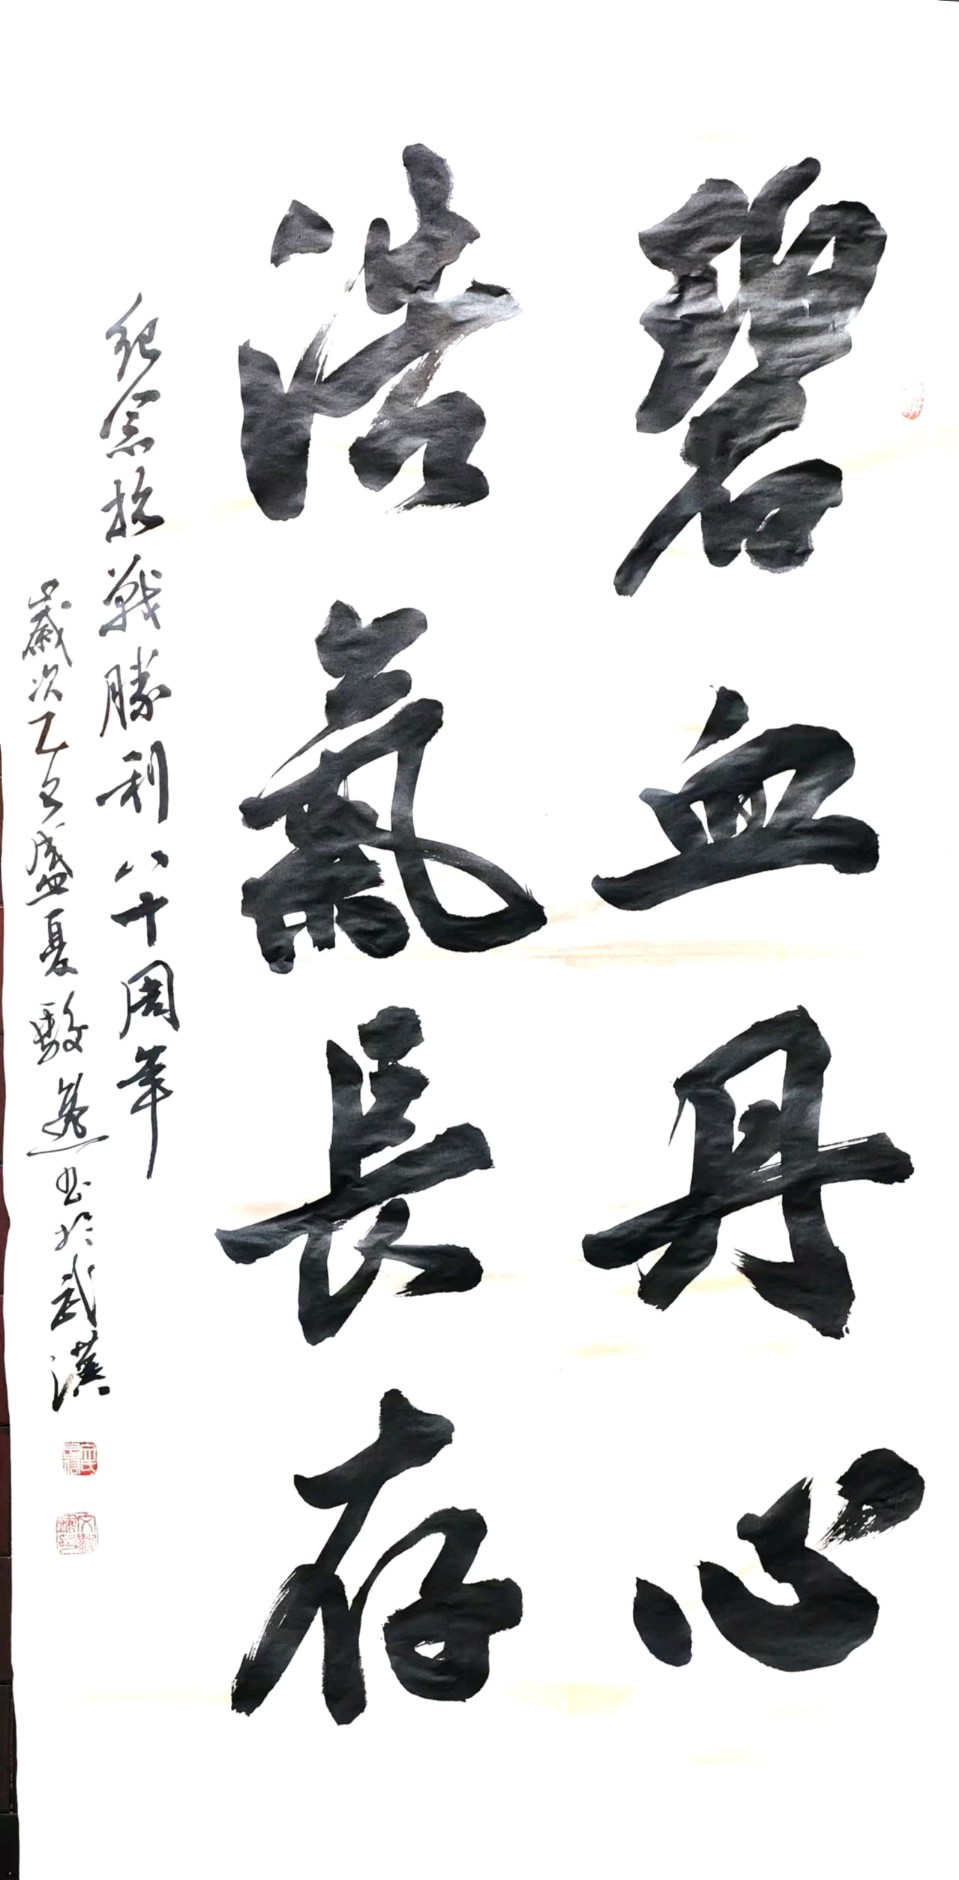 碧血丹心
浩氣長存
紀念抗戰勝利八十周年
歲次乙巳盛夏 書於武漢